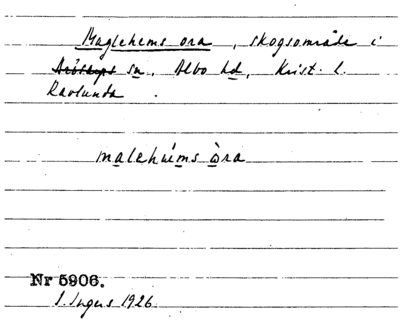 Maglehems ora, skogsområde i
Brösarps sn, Albo hd, Krist. l.
Ravlunda.
malehæms òra
Nr 5906.
S. Ingers 1926